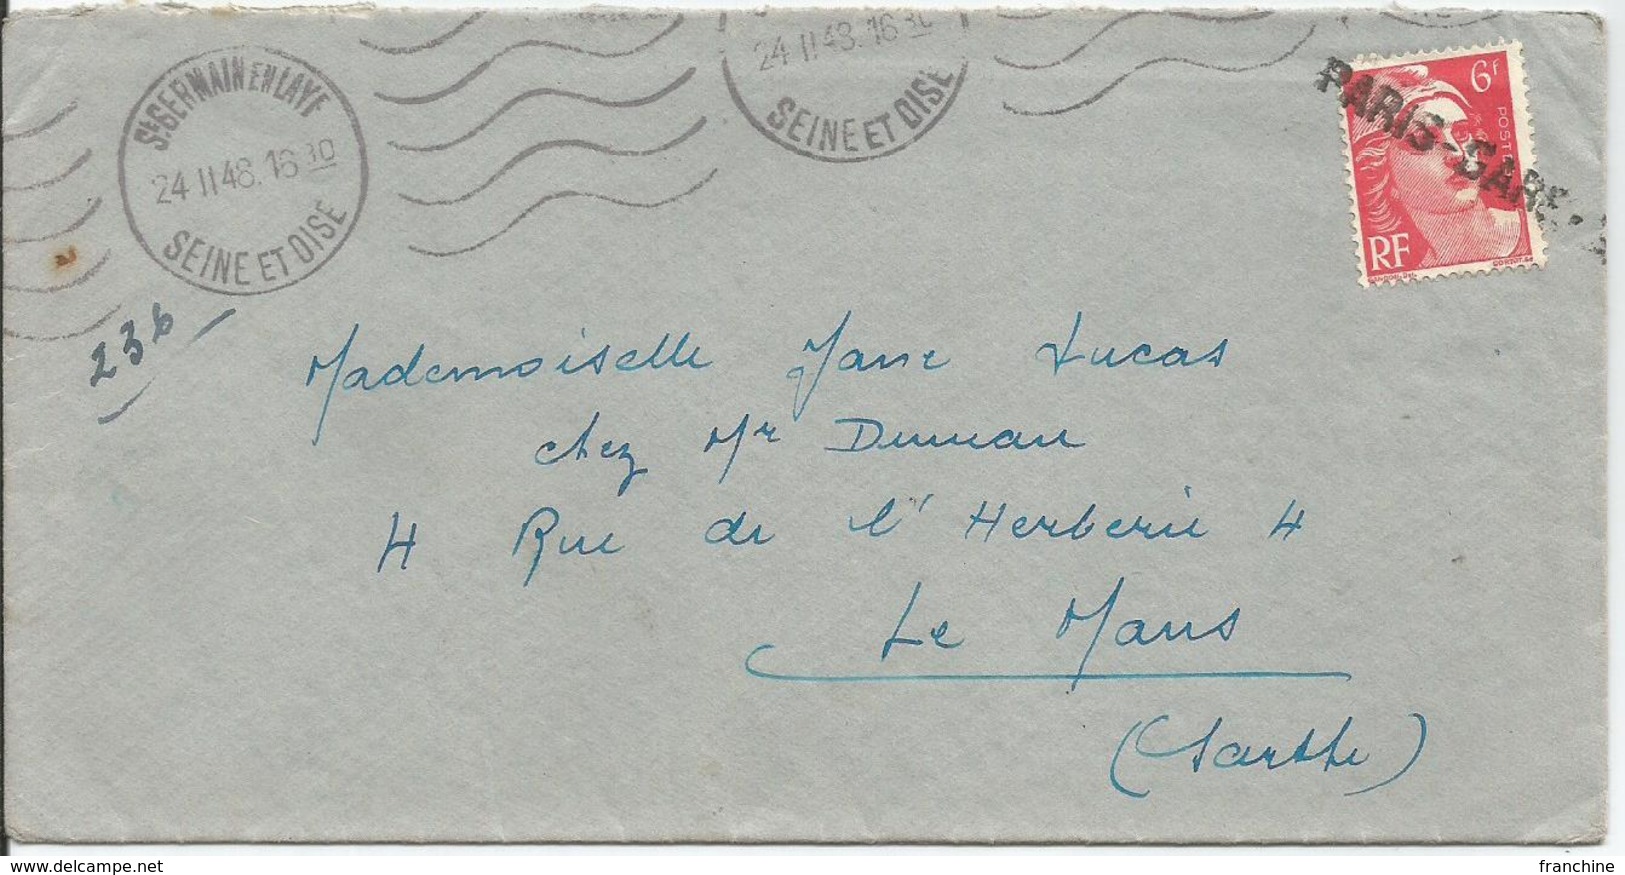 St GERMAIN EN LAYE
24 II 48. 16 30
SEINE ET OISE
24 II 48. 16 30
SEINE ET OISE
6F
POSTES
RF
PARIS-GARE-
236
Mademoiselle Jane Lucas
chez Mr
4 Rue de l'Herberie 4
Le Mans
(Sarthe)
www.delcampe.net
franchine